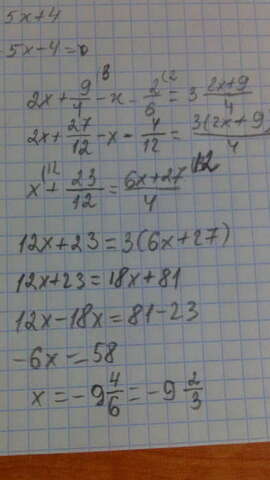 5x+4
5x-4=0
2x + 9/4 (3 - x - 2/6 (2 = 3 2x+9/4
2x + 27/12 - x - 4/12 = 3(2x+9/4
x (12 + 23/12 = 6x+27/4 12
12x+23=3(6x+27)
12x+23=18x+81
12x-18x=81-23
-6x=58
x=-9 4/6=-9 2/3